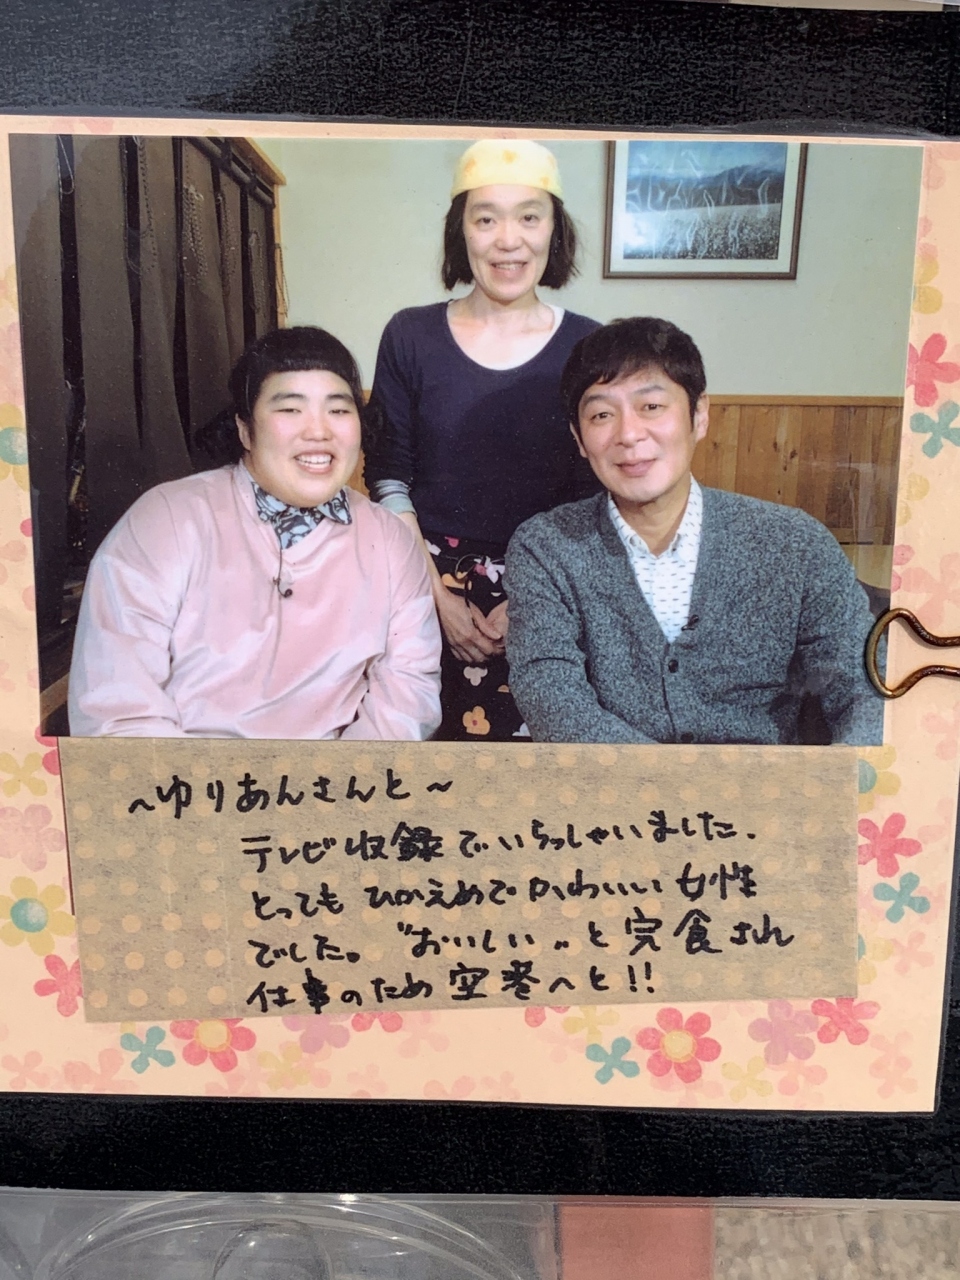 ～ゆりあんさんと～
テレビ収録でいらっしゃいました。
とっても ひかえめで かわいい 女性
でした。 "おいしい〟と 完食され
仕事のため 空港へと!!